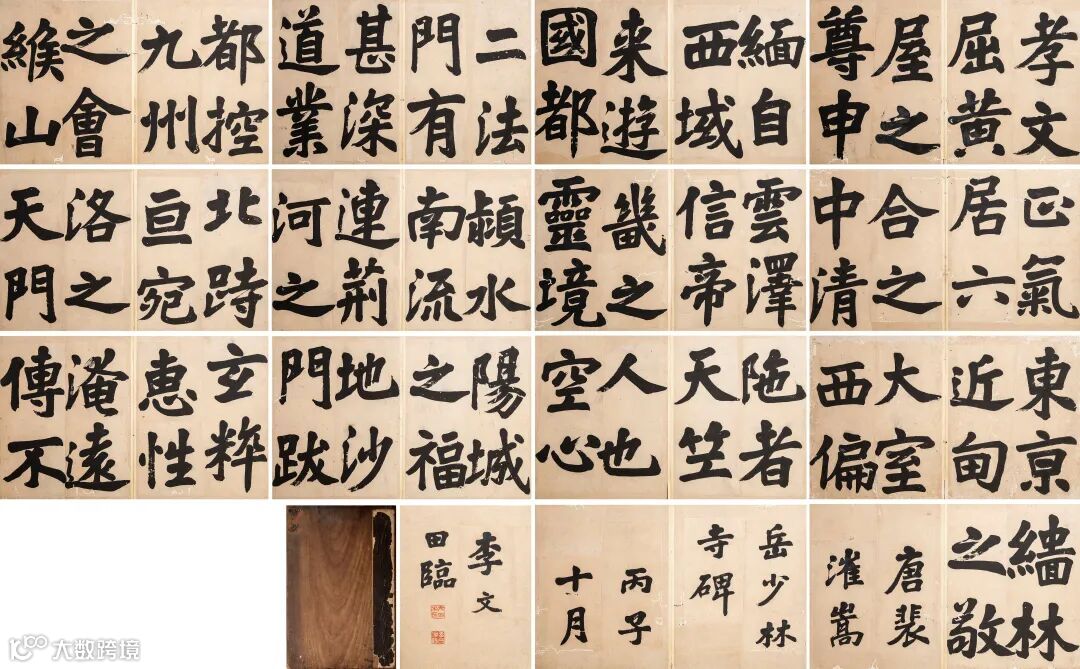 孝文
屈黄
屋之
尊申
緬自
西域
来遊
國都
二法
門有
甚深
道業
都控
九州
之會
緱山
正氣
居六
合之
中清
雲澤
信帝
畿之
靈境
潁水
南流
連荊
河之
北畤
亘宛
洛之
天門
東京
近甸
大室
西偏
陁者
天竺
人也
空心
陽城
之福
地沙
門跋
玄粹
惠性
淹遠
傳不
緇林
之敬
唐裴
漼嵩
岳少林
寺碑
丙子
十月
李文
田臨
大数跨境